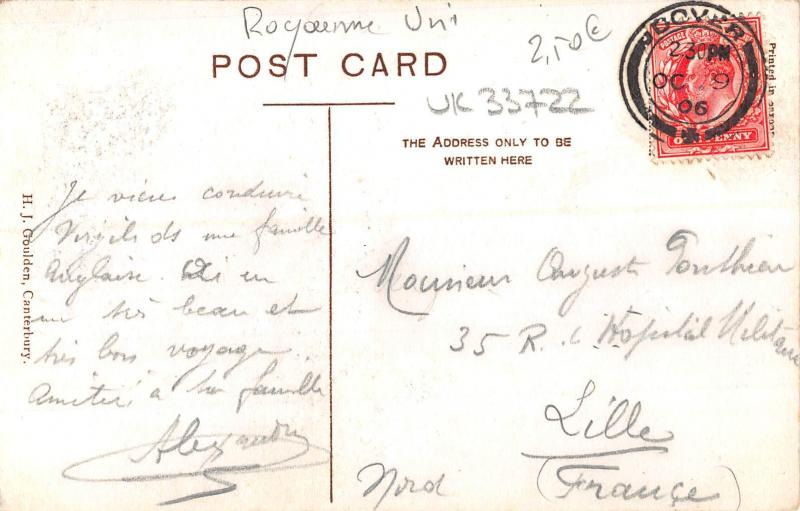 Royaume Uni
2,50 €
POST CARD
UK 33722
THE ADDRESS ONLY TO BE
WRITTEN HERE
DOVER
2 30 PM
OC 9
06
POSTAGE
ONE PENNY
Printed in
H. J. Goulden, Canterbury.
Je viens conduire
Virgile ds une famille
Anglaise. en
un très beau et
très bon voyage.
Amitiés à ta famille
Alexandre
Monsieur Auguste Ponthieu
35 R. Hopital Militaire
Lille
Nord (France)